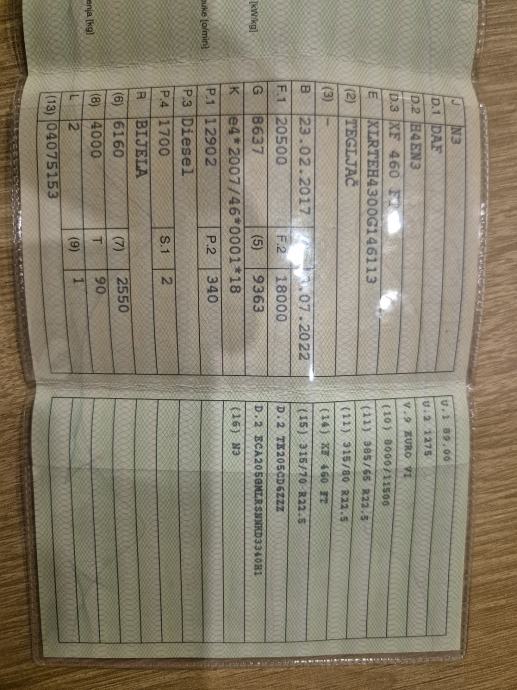 [kW/kg]
[o/min]
[kg]
J N3
D.1 DAF
D.2 H4EN3
D.3 XF 460 FT
E XLRTEH4300G146113
(2) TEGLJAČ
(3) -
B 23.02.2017 .07.2022
F.1 20500 F.2 18000
G 8637 (5) 9363
K e4*2007/46*0001*18
P.1 12902 P.2 340
P.3 Diesel
P.4 1700 S.1 2
R BIJELA
(6) 6160 (7) 2550
(8) 4000 T 90
L 2 (9) 1
(13) 04075153
U.1 89.00
U.2 1275
V.9 EURO VI
(10) 8000/11500
(11) 385/65 R22.5
(11) 315/80 R22.5
(14) XF 460 FT
(15) 315/70 R22.5
D.2 TE205CD6ZZZ
D.2
(16) N3